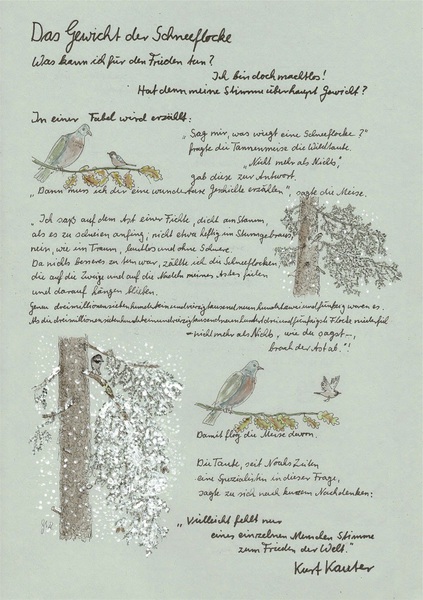 Das Gewicht der Schneeflocke
Was kann ich für den Frieden tun?
Ich bin doch machtlos!
Hat denn meine Stimme überhaupt Gewicht?
In einer Fabel wird erzählt:
„Sag mir, was wiegt eine Schneeflocke?"
fragte die Tannenmeise die Wildtaube.
„Nicht mehr als Nichts",
gab diese zur Antwort.
„Dann muss ich dir eine wunderbare Geschichte erzählen", sagte die Meise.
„Ich saß auf dem Ast einer Fichte, dicht am Stamm,
als es zu schneien anfing; nicht etwa heftig im Sturmgebraus,
nein, wie im Traum, lautlos und ohne Schwere.
Da nichts besseres zu tun war, zählte ich die Schneeflocken,
die auf die Zweige und auf die Nadeln meines Astes fielen
und darauf hängen blieben.
Genau dreimillionensiebenhunderteinundvierzigtausendneunhundertzweiundfünfzig waren es.
Als die dreimillionensiebenhunderteinundvierzigtausendneunhundertdreiundfünfzigste Flocke niederfiel
– nicht mehr als Nichts, wie du sagst –,
brach der Ast ab."!
Damit flog die Meise davon.
Die Taube, seit Noahs Zeiten
eine Spezialistin in dieser Frage,
sagte zu sich nach kurzem Nachdenken:
„Vielleicht fehlt nur
eines einzelnen Menschen Stimme
zum Frieden der Welt."
Kurt Kauter